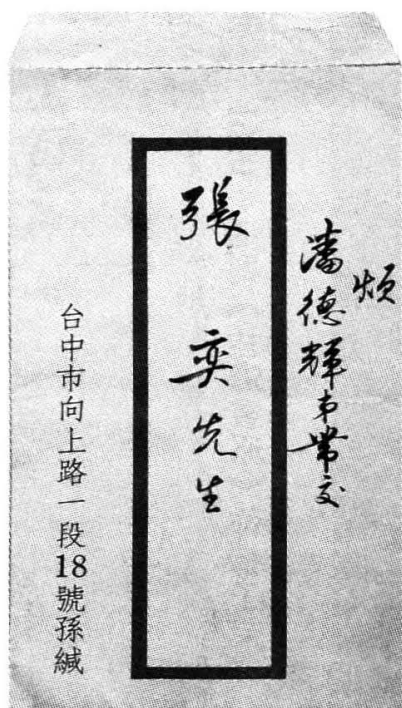 煩
潘德輝弟帶交
張奕先生
台中市向上路一段18號孫緘